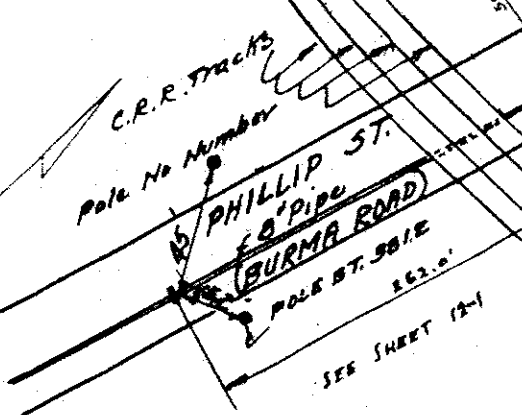 C.R.R. Tracks
Pole No Number
PHILLIP ST.
8" Pipe
(BURMA ROAD)
POLE BT. 381.E
262.0'
SEE SHEET 12-1